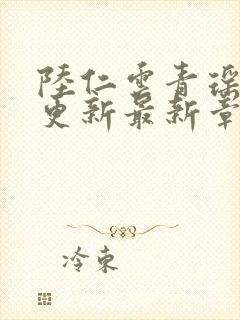 陸仁雲青瑶
更新最新章
冷東